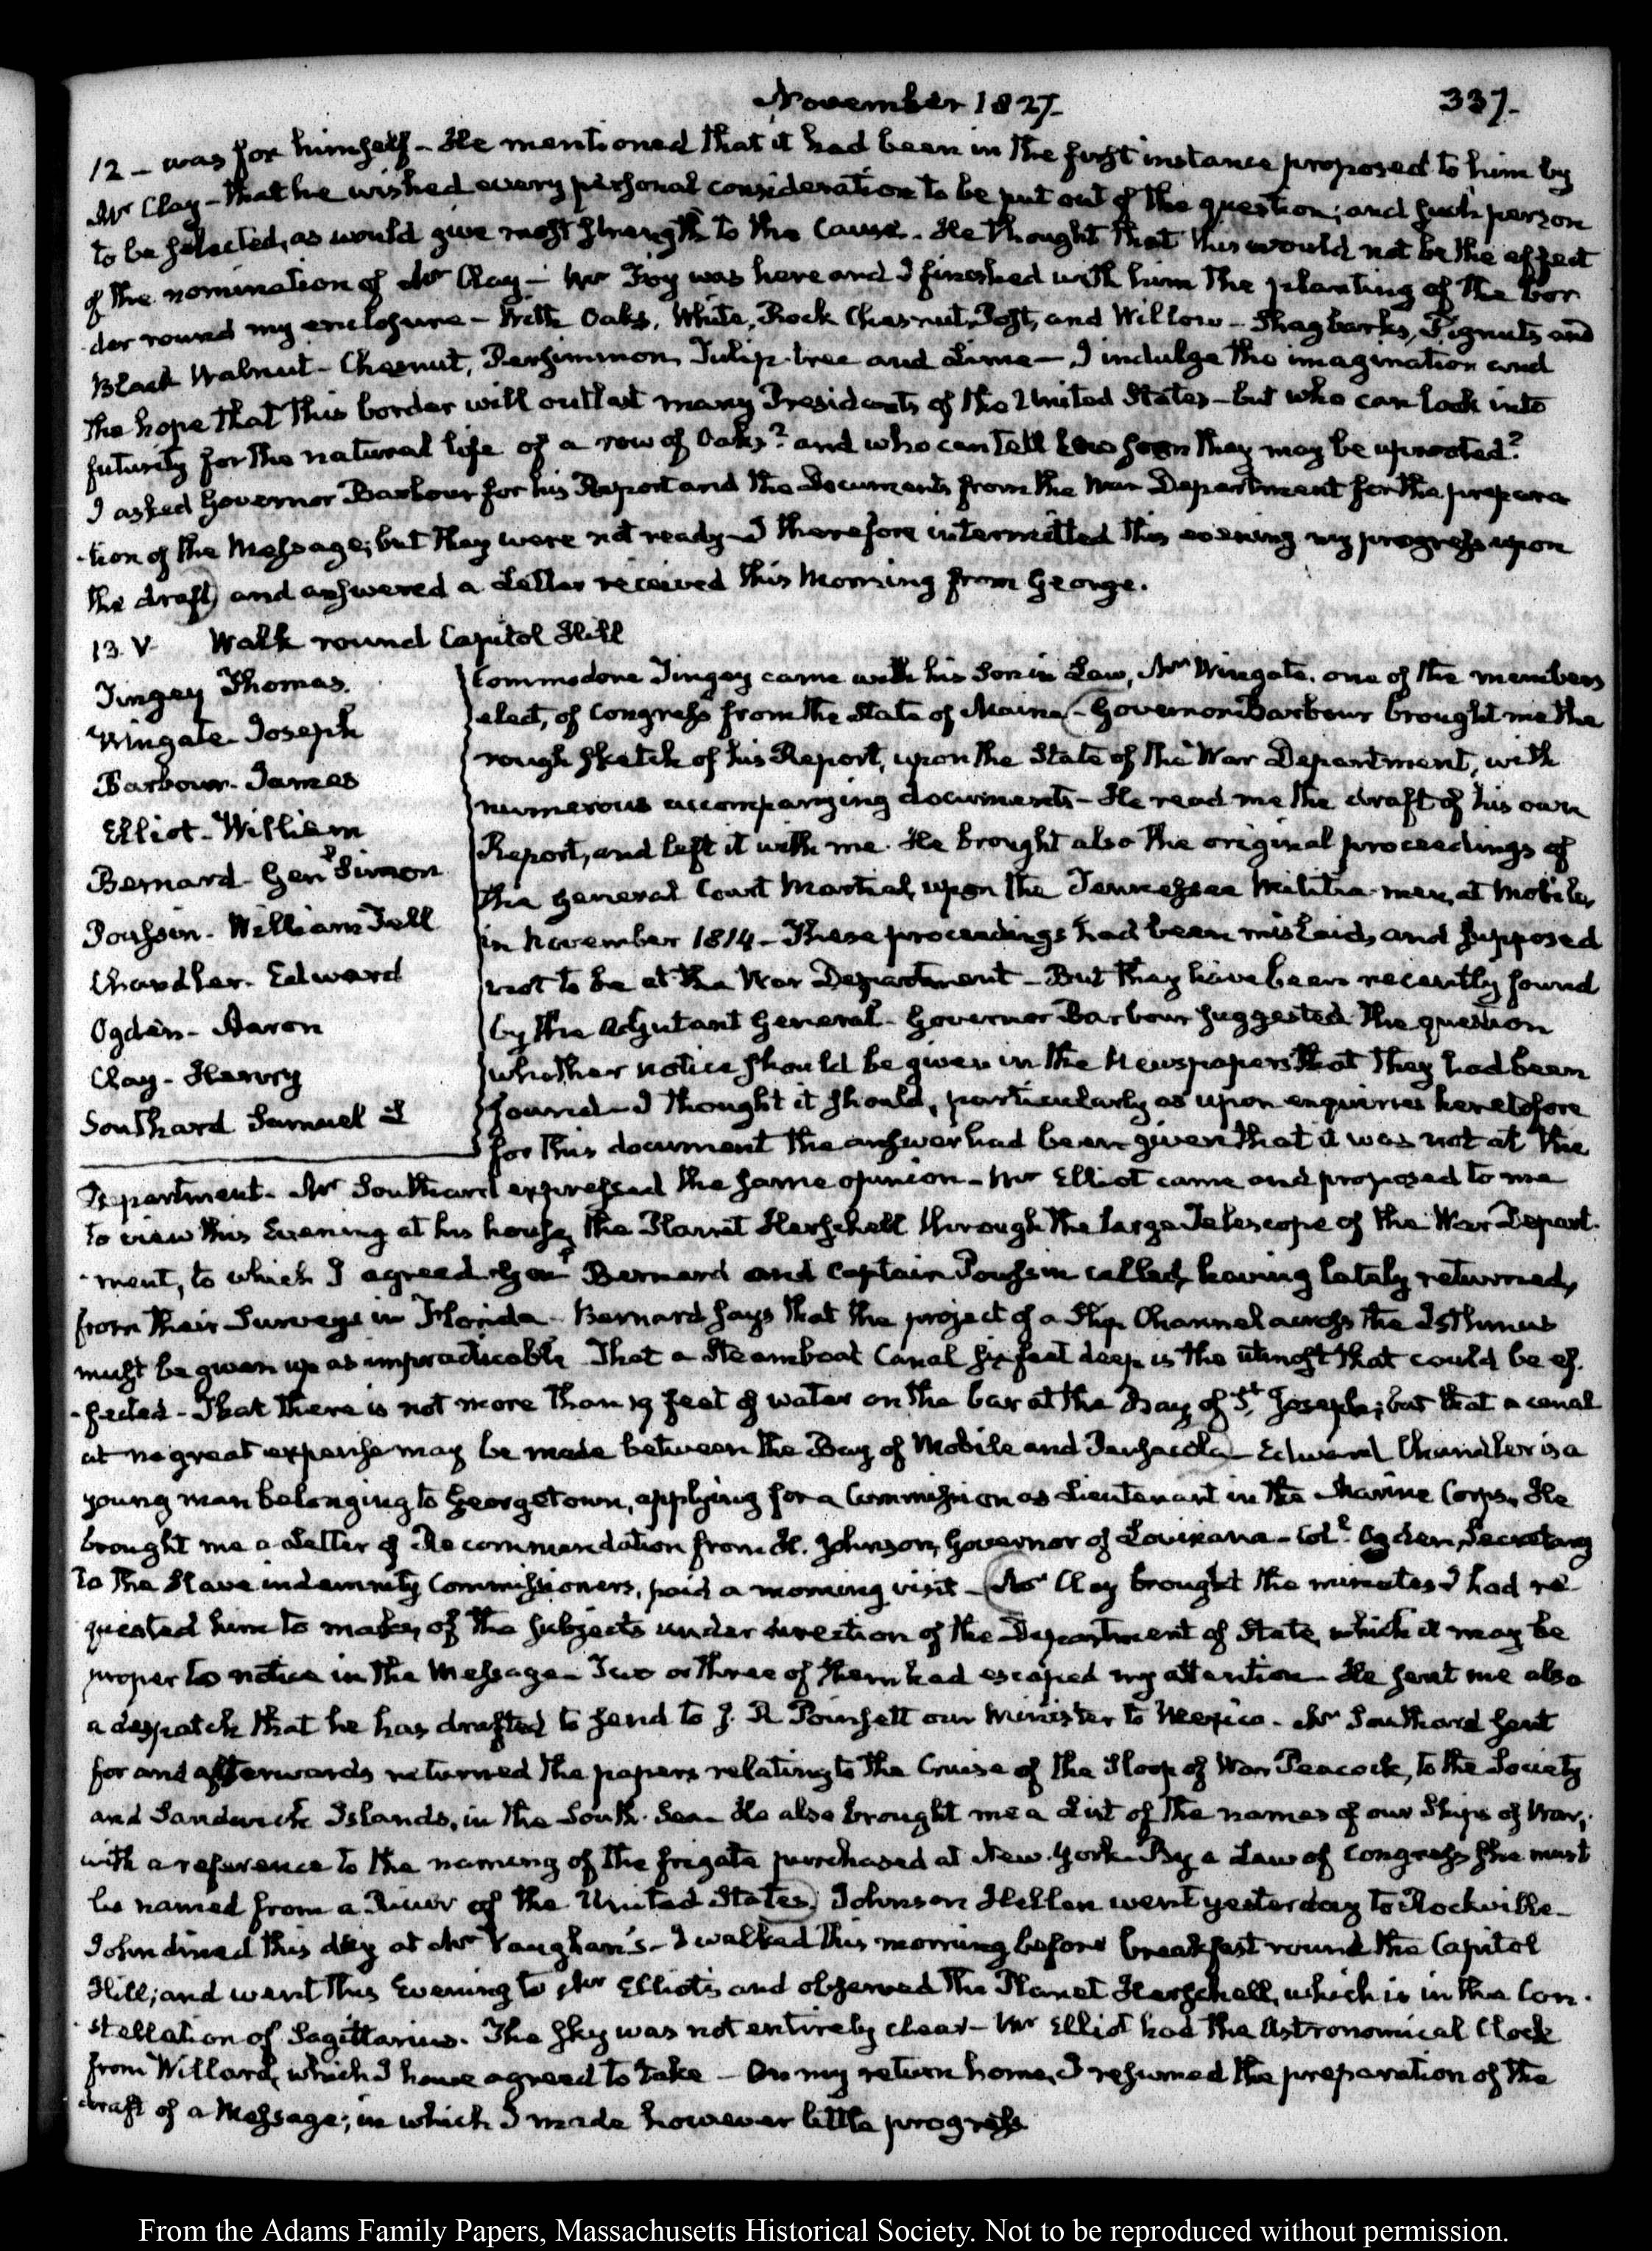 November 1827.
337.
12 – was for himself – He mentioned that it had been in the first instance proposed to him by
Mr Clay – that he wished every personal consideration to be put out of the question; and such person
to be selected, as would give most strength to the Cause. He thought that this would not be the effect
of the nomination of Mr Clay – Mr Foy was here and I finished with him the planting of the bor
der round my enclosure – With Oaks, White, Rock Chesnut, Post, and Willow – Shagbarks, Pignuts and
Black Walnut – Chesnut, Persimmon, Tulip-tree and Lime – I indulge the imagination and
the hope that this border will outlast many Presidents of the United States – but who can look into
futurity for the natural life of a row of Oaks? and who can tell how soon they may be uprooted?
I asked Governor Barbour for his Report and the Documents from the War Department for the prepara
-tion of the Message; but they were not ready – I therefore intermitted this evening my progress upon
the draft, and answered a Letter received this Morning from George.
13. V. Walk round Capitol Hill
Tingey Thomas.
Wingate – Joseph
Barbour – James
Elliot – William
Bernard – Genl Simon
Poussin – William Tell
Chandler – Edward
Ogden – Aaron
Clay – Henry
Southard Samuel L
Commodore Tingey came with his Son in Law, Mr Wingate, one of the members
elect, of Congress from the State of Maine – Governor Barbour brought me the
rough sketch of his Report, upon the State of the War Department, with
numerous accompanying documents – He read me the draft of his own
Report, and left it with me. He brought also the original proceedings of
the General Court Martial, upon the Tennessee Militia-men, at Mobile,
in November 1814 – These proceedings had been mislaid, and supposed
not to be at the War Department – But they have been recently found
by the Adjutant General – Governor Barbour suggested the question
whether notice should be given in the Newspapers that they had been
found – I thought it should, particularly as upon enquiries heretofore
for this document the answer had been given that it was not at the
Department. Mr Southard expressed the same opinion – Mr Elliot came and proposed to me
to view this Evening at his house, the Planet Herschell through the large Telescope of the War Depart-
-ment, to which I agreed. Genl Bernard and Captain Poussin called, having lately returned,
from their Surveys in Florida – Bernard says that the project of a Ship Channel across the Isthmus
must be given up as impracticable. That a Steamboat Canal six feet deep is the utmost that could be ef-
-fected – That there is not more than 19 feet of water on the bar at the Bay of St Joseph; but that a canal
at no great expense may be made between the Bay of Mobile and Pensacola – Edward Chandler is a
young man belonging to Georgetown, applying for a Commission as Lieutenant in the Marine Corps, He
brought me a Letter of Recommendation from H. Johnson, Governor of Louisiana – Col. Ogden, Secretary
to the Slave indemnity Commissioners, paid a morning visit – Mr Clay brought the minutes I had re
quested him to make, of the subjects under direction of the Department of State, which it may be
proper to notice in the Message – Two or three of them had escaped my attention – He sent me also
a despatch that he has drafted to send to J. R Poinsett our Minister to Mexico. Mr Southard sent
for and afterwards returned the papers relating to the Cruise of the Sloop of War Peacock, to the Society
and Sandwich Islands, in the South-Sea – He also brought me a List of the names of our Ships of War,
with a reference to the naming of the frigate purchased at New-York – By a Law of Congress she must
be named from a River of the United States, Johnson Hellen went yesterday to Rockville –
John dined this day at Mr Vaughan's – I walked this morning before breakfast round the Capitol
Hill; and went this Evening to Mr Elliot's and observed the Planet Herschell, which is in the Con-
-stellation of Sagittarius. The sky was not entirely clear – Mr Elliot had the Astronomical Clock
from Willard, which I have agreed to take – On my return home, I resumed the preparation of the
draft of a Message; in which I made however little progress
From the Adams Family Papers, Massachusetts Historical Society. Not to be reproduced without permission.